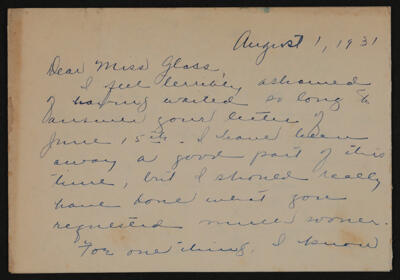 August 1, 1931
Dear Miss Glass,
I feel terribly ashamed
of having waited so long to
answer your letter of
June 15th. I have been
away a good part of this
time, but I should really
have done what you
requested much sooner.
For one thing, I know